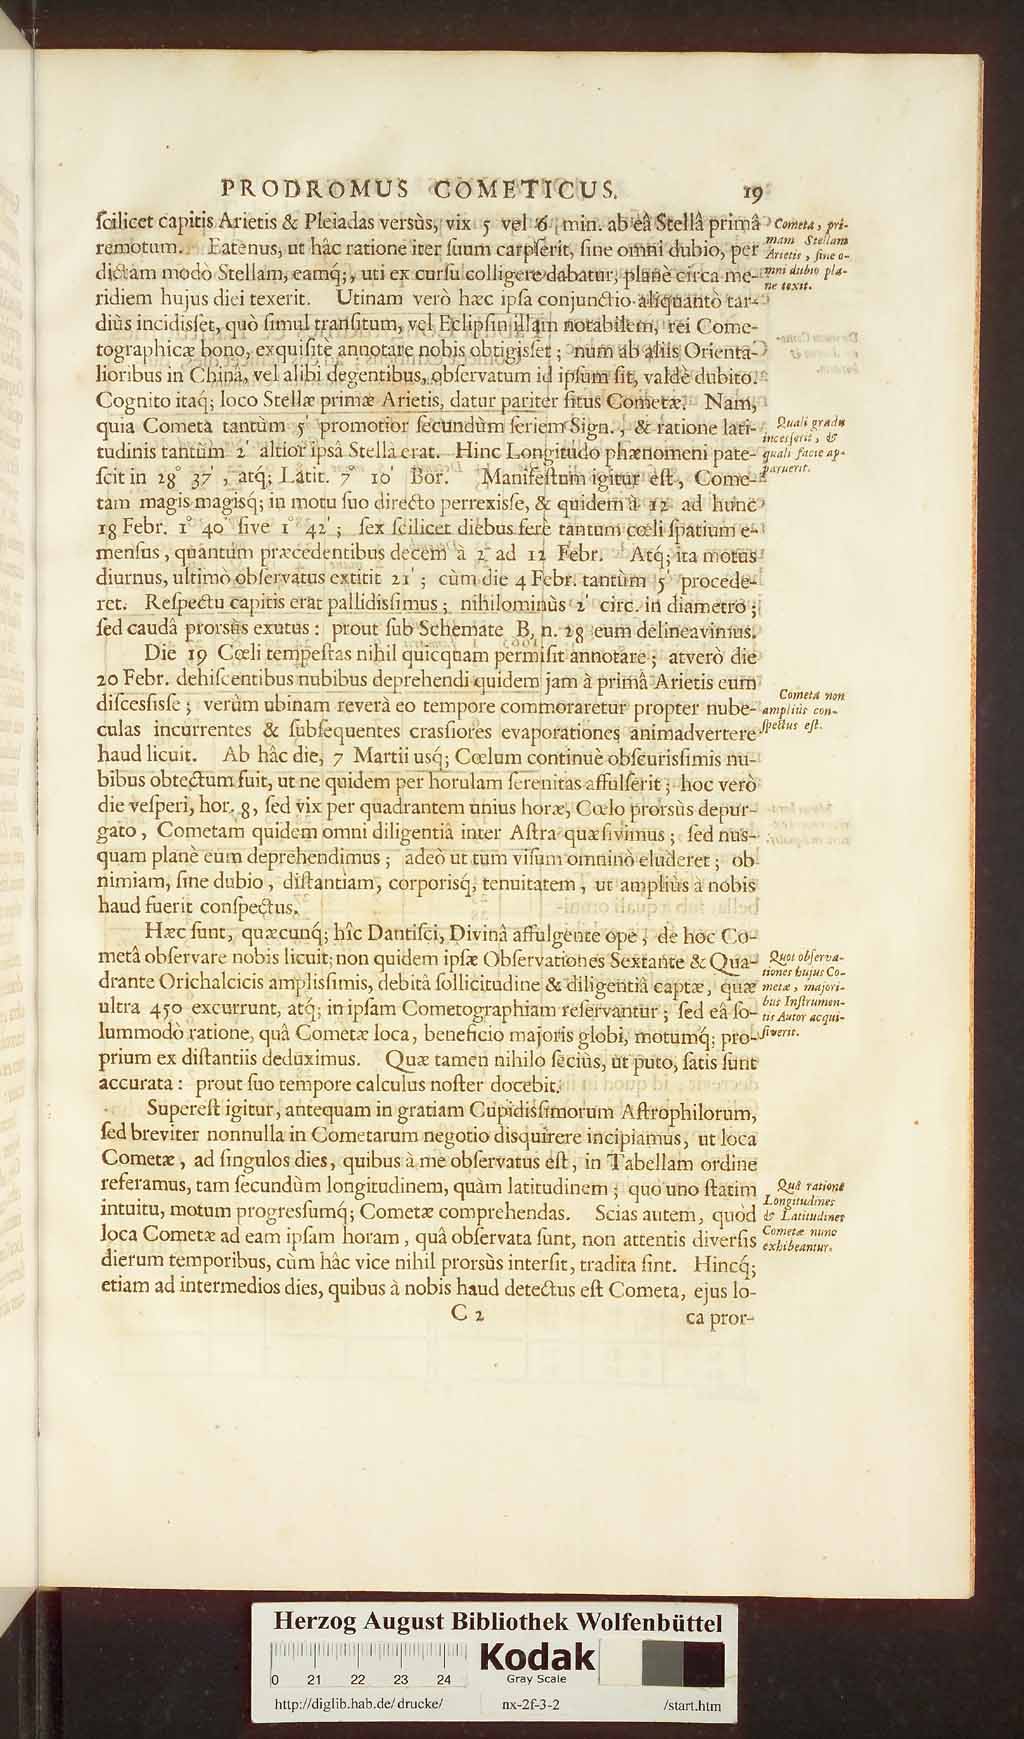 PRODROMUS COMETICUS. 19
ſcilicet capitis Arietis & Pleiadas versùs, vix 5 vel 6 min. ab eâ Stellâ primâ
remotum. Eatenus, ut hâc ratione iter ſuum carpſerit, ſine omni dubio, per
dictam modò Stellam, eamq́;, uti ex curſu colligere dabatur, planè circa me-
ridiem hujus diei texerit. Utinam verò hæc ipſa conjunctio aliquantò tar-
diùs incidisſet, quò ſimul tranſitum, vel Eclipſin illam notabilem, rei Come-
tographicæ bono, exquiſitè annotare nobis obtigisſet; num ab aliis Orienta-
lioribus in Chinâ, vel alibi degentibus, obſervatum id ipſum ſit, valdè dubito.
Cognito itaq́; loco Stellæ primæ Arietis, datur pariter ſitus Cometæ. Nam,
quia Cometa tantùm 5' promotior ſecundùm ſeriem Sign., & ratione lati-
tudinis tantùm 2' altior ipsâ Stellâ erat. Hinc Longitudo phænomeni pate-
ſcit in 28° 37', atq́; Latit. 7° 10' Bor. Manifeſtum igitur eſt, Come-
tam magis magisq́; in motu ſuo directo perrexisſe, & quidem à 12 ad hunc
18 Febr. 1° 40' ſive 1° 42'; ſex ſcilicet diebus ferè tantum cœli ſpatium e-
menſus, quantùm præcedentibus decem à 2 ad 12 Febr. Atq́; ita motus
diurnus, ultimò obſervatus extitit 21'; cùm die 4 Febr. tantùm 5' procede-
ret. Reſpectu capitis erat pallidisſimus; nihilominùs 2' circ. in diametro;
ſed caudâ prorsùs exutus: prout ſub Schemate B, n. 28 eum delineavimus.
Die 19 Cœli tempeſtas nihil quicquam permiſit annotare; atverò die
20 Febr. dehiſcentibus nubibus deprehendi quidem jam à primâ Arietis eum
diſcesſisſe; verùm ubinam reverà eo tempore commoraretur propter nube-
culas incurrentes & ſubſequentes crasſiores evaporationes animadvertere
haud licuit. Ab hâc die, 7 Martii usq́; Cœlum continuè obſcurisſimis nu-
bibus obtectum fuit, ut ne quidem per horulam ſerenitas affulſerit; hoc verò
die veſperi, hor. 8, ſed vix per quadrantem unius horæ, Cœlo prorsùs depur-
gato, Cometam quidem omni diligentiâ inter Aſtra quæſivimus; ſed nus-
quam planè eum deprehendimus; adeò ut tum viſum omninò eluderet; ob
nimiam, ſine dubio, diſtantiam, corporisq́; tenuitatem, ut ampliùs à nobis
haud fuerit conſpectus.
Hæc ſunt, quæcunq́; hîc Dantiſci, Divinâ affulgente ope, de hoc Co-
metâ obſervare nobis licuit; non quidem ipſæ Obſervationes Sextante & Qua-
drante Orichalcicis amplisſimis, debitâ ſollicitudine & diligentiâ captæ, quæ
ultra 450 excurrunt, atq́; in ipſam Cometographiam reſervantur; ſed eâ ſo-
lummodò ratione, quâ Cometæ loca, beneficio majoris globi, motumq́; pro-
prium ex diſtantiis deduximus. Quæ tamen nihilo ſeciùs, ut puto, ſatis ſunt
accurata: prout ſuo tempore calculus noſter docebit.
Supereſt igitur, antequam in gratiam Cupidisſimorum Aſtrophilorum,
ſed breviter nonnulla in Cometarum negotio disquirere incipiamus, ut loca
Cometæ, ad ſingulos dies, quibus à me obſervatus eſt, in Tabellam ordine
referamus, tam ſecundùm longitudinem, quàm latitudinem; quo uno ſtatim
intuitu, motum progresſumq́; Cometæ comprehendas. Scias autem, quod
loca Cometæ ad eam ipſam horam, quâ obſervata ſunt, non attentis diverſis
dierum temporibus, cùm hâc vice nihil prorsùs interſit, tradita ſint. Hincq́;
etiam ad intermedios dies, quibus à nobis haud detectus eſt Cometa, ejus lo-
C 2 ca pror-
Cometa, pri-
mam Stellam
Arietis, ſine o-
mni dubio pla-
nè texit.
Quali gradu
inceſſerit, &
quali facie ap-
paruerit.
Cometa non
ampliùs con-
ſpectus eſt.
Quot obſerva-
tiones hujus Co-
metæ, majori-
bus Inſtrumen-
tis Autor acqui-
ſiverit.
Quâ ratione
Longitudines
& Latitudines
Cometæ nunc
exhibeantur.
Herzog August Bibliothek Wolfenbüttel
Kodak
Gray Scale
0 21 22 23 24
http://diglib.hab.de/drucke/ nx-2f-3-2 /start.htm